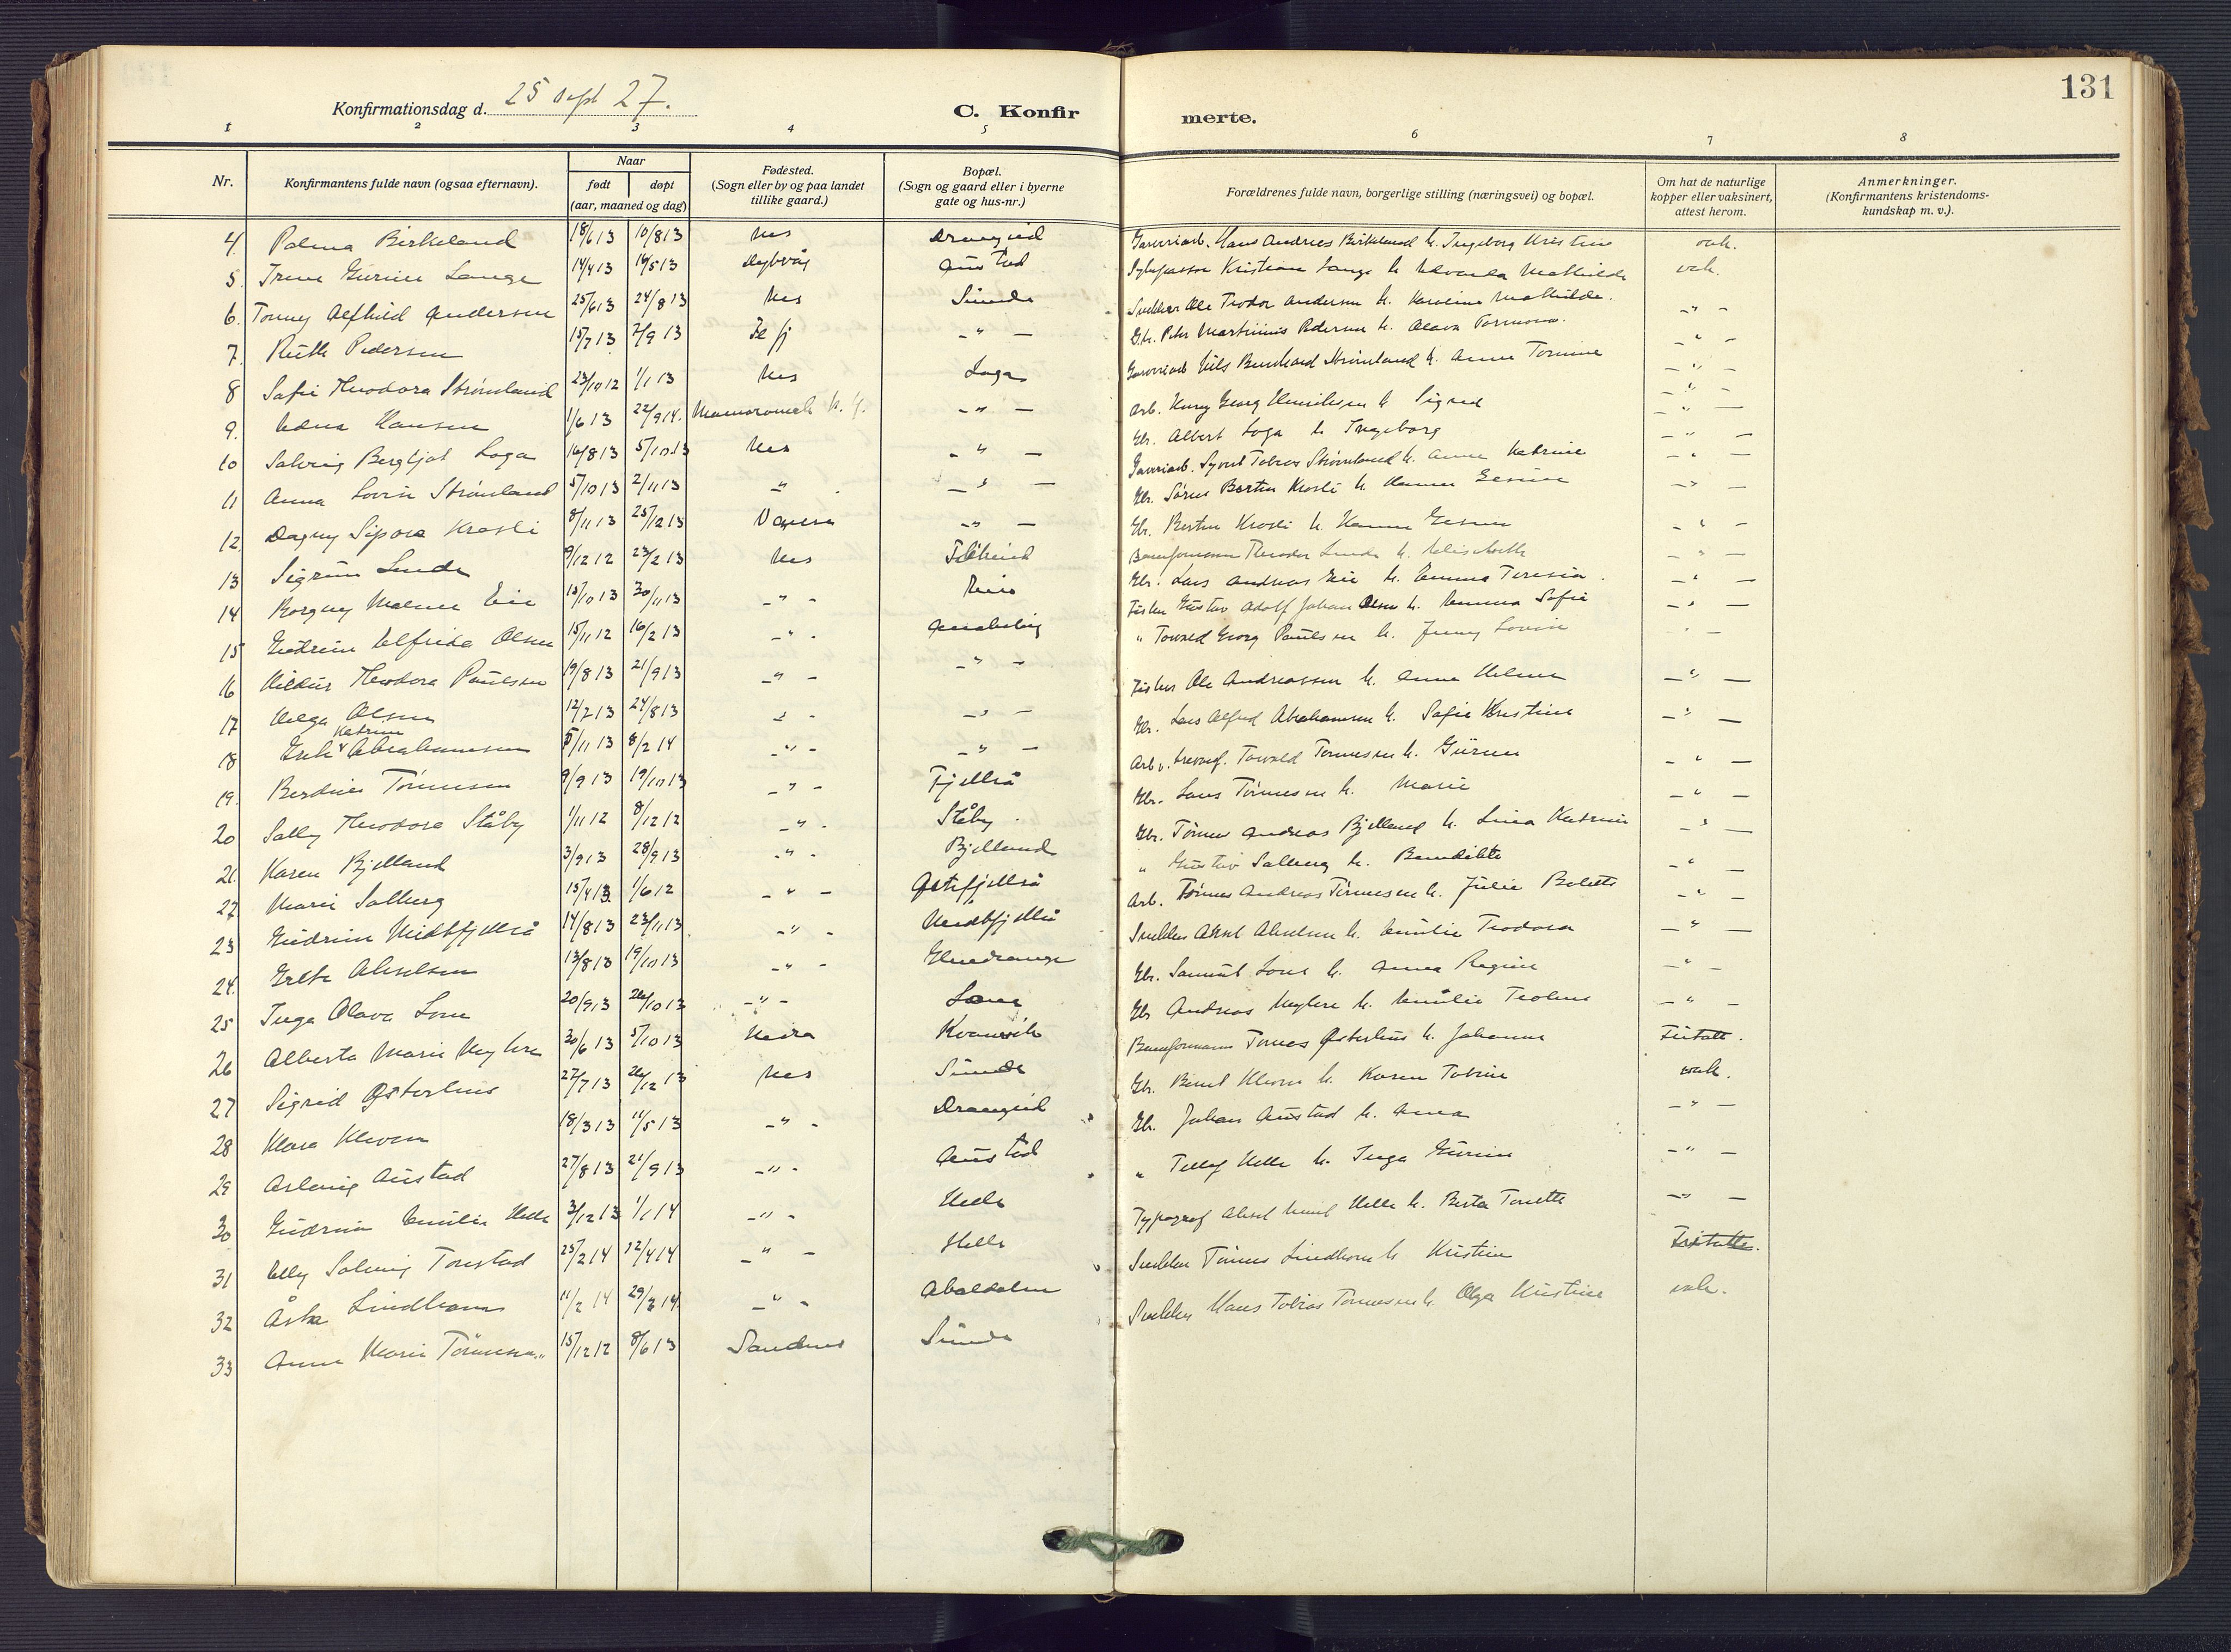 131
Konfirmationsdag d. 25 sept 27.
C. Konfirmerte.
1 2 3 4 5 6 7 8
Nr.
Konfirmantens fulde navn (ogsaa efternavn).
Naar
født
døpt
(aar, maaned og dag)
Fødested.
(Sogn eller by og paa landet
tillike gaard.)
Bopæl.
(Sogn og gaard eller i byerne
gate og hus-nr.)
Forældrenes fulde navn, borgerlige stilling (næringsvei) og bopæl.
Om hat de naturlige
kopper eller vaksinert,
attest herom.
Anmerkninger.
(Konfirmantens kristendoms-
kundskap m. v.).
4. Palma Birkeland 18/6 13 10/8 13 Nes Drangeid Garveriarb. Hans Andreas Birkeland h. Ingeborg Kristine vak.
5. Irene Gurine Lange 14/4 13 Austad Kristian Lange h. Mathilde vak.
6. Tonny Alfhild Andersen 25/6 13 24/8 13 Nes Sunde Snekker Ole Teodor Andersen h. Karoline Mathilde. -"-
7. Ruth Pedersen 15/7 13 7/9 13 -"- Gbr. Peter Martinius Pedersen h. Olava -"-
8 Safie Theodora Strømland 23/10 12 1/1 13 Nes Loga Garveriarb Nils Bernhard Strømland h. Anna Tomine -"-
9. Hansen 1/6 13 22/9 14. -"- Arb. Georg h Sigrid -"-
10 Solveig Bergljot Loga 16/8 13 5/10 13 Nes -"- Gbr. Albert Loga h Ingeborg -"-
11 Anna Lovise Strømland 5/10 13 2/11 13 -"- -"- Garveriarb. Syvert Tobias Strømland h. Anne Katrine -"-
12. Dagny Sipora Krosli 8/11 13 25/12 13 Vanse -"- Gbr. Berthin Krosli h. Hanna -"-
13 Sigrun Sunde 9/12 12 23/2 13 Nes Theodor Sunde h. -"-
14 Borgny Malene Eie 15/10 13 30/11 13 -"- Gbr. Lars Andreas Eie h. Emma Teresia -"-
15 Gudrun Alfrida Olsen 15/11 12 16/2 13 -"- Anabeløy Fisker Gustav Adolf Johan Olsen h. Emma Sofie -"-
16 Hildur Theodora Paulsen 19/8 13 21/9 13 -"- -"- " Towald Georg Paulsen h. Jenny Lovise -"-
17 Helga Olsen 12/7 13 24/8 13 -"- -"- Fisker Ole Andreassen h. Anna Helene -"-
18 Katrine Abrahamsen 5/11 13 8/2 14 -"- -"- Gbr. Lars Alfred Abrahamsen h. Sofie Kristine -"-
19. Berdines Tönnessen 9/9 13 19/10 13 -"- Fjellså Towald Tönnessen h. Gurine -"-
20 Sally Theodora Ståby 1/11 12 8/12 12 -"- Ståby Gbr. Lars Tönnesen h. Marie -"-
21. Karen Bjelland 3/9 13 28/9 13 -"- Bjelland Gbr. Tönnes Andreas Bjelland h. Lina Katrine -"-
22 Marie Salberg 15/4 13 1/6 12 -"- Østefjellså " Gustav Salberg h. Bendikte -"-
23 Gudrun Midtfjellså 14/8 13 23/11 13 -"- Midtfjellså Arb. Tönnes Andreas Tönnesen h. Julie Bolette -"-
24. Grete Akselsen 13/8 13 19/10 13 -"- Snekker Aksel Akselsen h. Emilie Teodora -"-
25 Inga Olava Lone 20/9 13 26/10 13 -"- Lone Gbr. Samuel Lone h. Anna Regine -"-
26 Alberta Marie 30/6 13 5/10 13 Kvanvik Gbr Andreas h. Emilie Teoline -"-
27 Sigrid Østerhus 27/7 13 26/12 13 Nes Sunde Tönnes Østerhus h. Johanne Fritatt.
28 Klara Kleven 18/3 13 11/5 13 -"- Drangeid Gbr. Bent Kleven h. Karen Tobine vak.
29 Aslaug Austad 27/8 13 21/9 13 -"- Austad Gbr. Johan Austad h. Anna -"-
30 Gudrun Emilie Helle 3/12 13 1/1 14 -"- Helle " Tellef Helle h. Inga Gurine -"-
31 Elly Solveig Tonstad 25/2 14 12/4 14 -"- Helle Typograf Aksel Emil Helle h. Berta Tonette -"-
32 Åsta Lindhom 11/2 14 29/3 14. -"- Snekker Tönnes Lindhom h Kristine Fritatt.
33 Anne Marie Tönnessen 15/12 12 8/6 13 Sandnes Sunde Snekker Hans Tobias Tönnessen h. Olga Kristine vak.